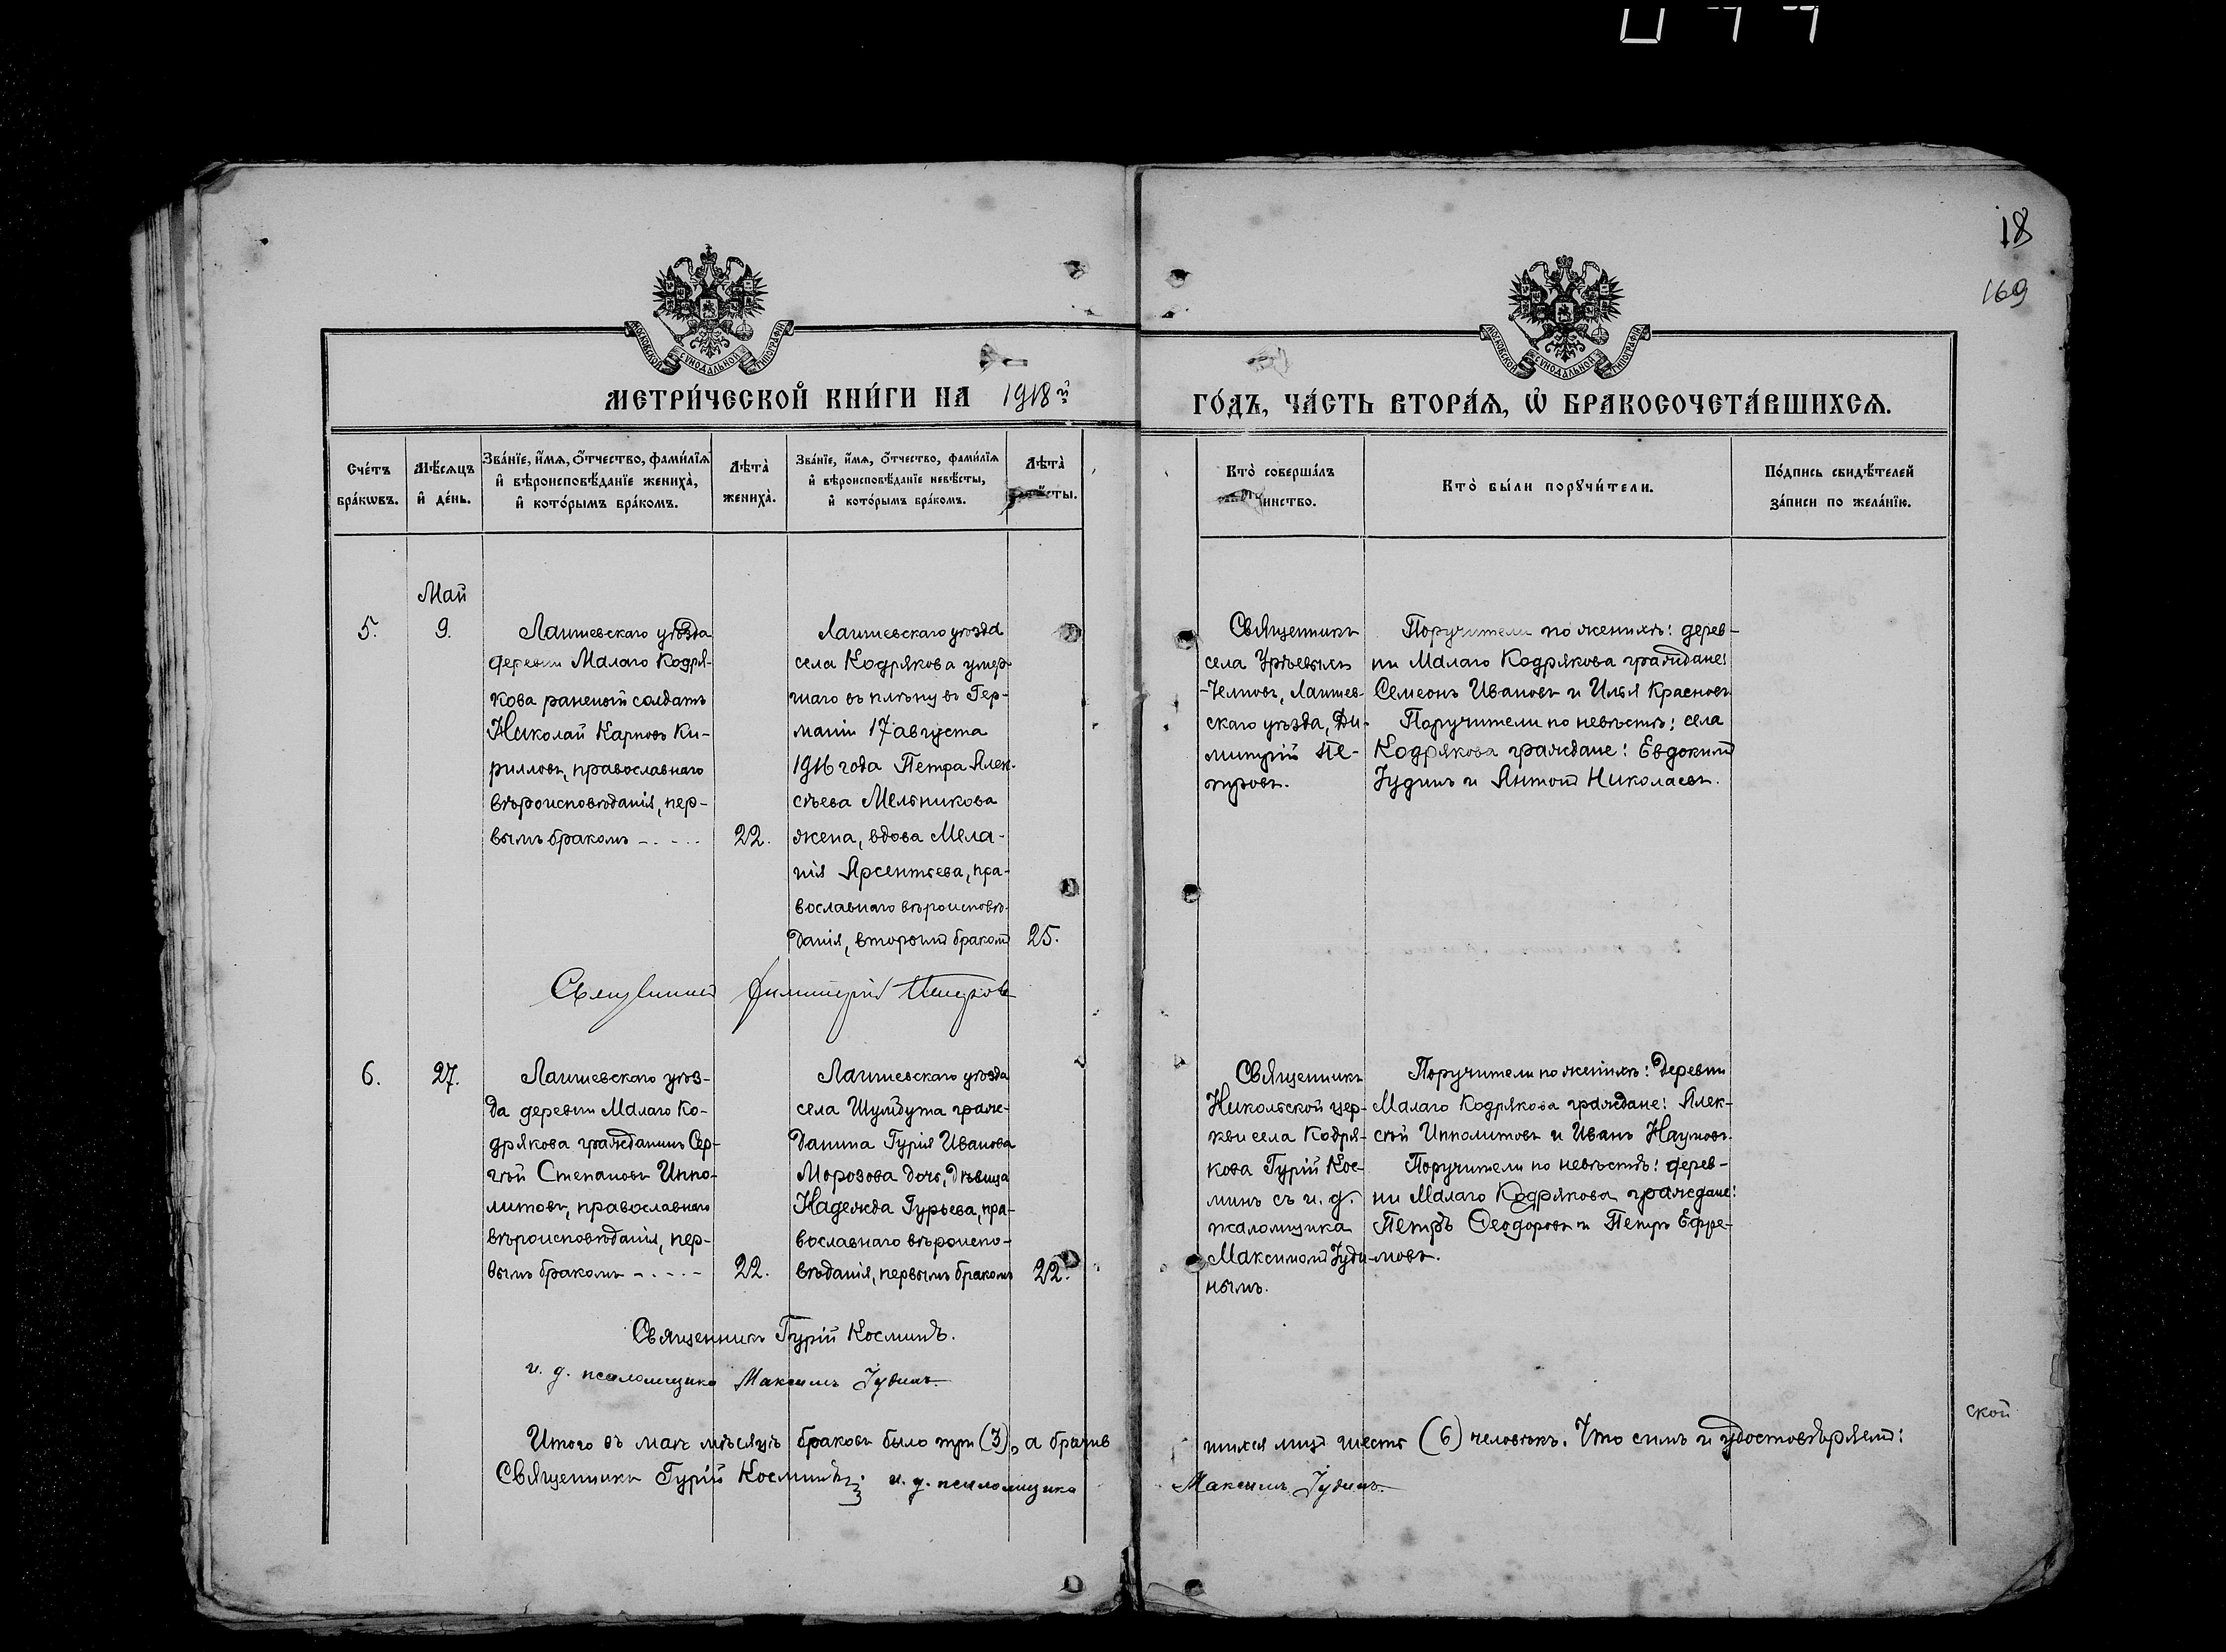 18
169
МОСКОВСКОЙ СѴНОДАЛЬНОЙ ТИПОГРАФІИ
МОСКОВСКОЙ СѴНОДАЛЬНОЙ ТИПОГРАФІИ
МЕТРИ́ЧЕСКОЙ КНИ́ГИ НА 1918й
ГО́ДЪ, ЧА́СТЬ ВТОРА́Я, Ѡ БРАКОСОЧЕТА́ВШИХСЯ.
Сче́тъ
бра́кѡвъ.
Мѣ́сяцъ
и де́нь.
Зва́нїе, и́мя, о́тчество, фами́лїя
и вѣроисповѣ́данїе жениха̀,
и кото́рымъ бра́комъ.
Лѣта̀
жениха̀.
Зва́нїе, и́мя, о́тчество, фами́лїя
и вѣроисповѣ́данїе невѣ́сты,
и кото́рымъ бра́комъ.
Лѣта̀
сты.
Кто̀ соверша́лъ
инство.
Кто̀ бы́ли порꙋчи́тели.
По́дпись свидѣ́телей
за́писи по жела́нїю.
Май
5.
9.
Лаишевскаго уѣзда
деревни Малаго Кодря-
кова раненый солдатъ
Николай Карповъ Ки-
рилловъ, православнаго
вѣроисповѣданія, пер-
вымъ бракомъ -.-..
22.
Лаишевскаго уѣзда
села Кодрякова умер-
шаго въ плѣну въ Гер-
маніи 17 августа
1916 года Петра Алек-
сѣева Мельникова
жена, вдова Мела-
нія Арсентьева, пра-
вославнаго вѣроисповѣ-
данія, вторымъ бракомъ
25.
Священникъ
села Урѣевыхъ
-Челновъ, Лаишев-
скаго уѣзда, Ди-
митрій Пе-
тровъ.
Поручители по женихѣ: дерев-
ни Малаго Кодрякова граждане:
Семеонъ Ивановъ и Илья Красновъ
Поручители по невѣстѣ: села
Кодрякова граждане: Евдокимъ
Іудинъ и Антонъ Николаевъ.
Священникъ Димитрій Петровъ
6.
27.
Лаишевскаго уѣз-
да деревни Малаго Ко-
дрякова гражданинъ Сер-
гѣй Степановъ Иппо-
литовъ, православнаго
вѣроисповѣданія, пер-
вымъ бракомъ -.-.-
22.
Лаишевскаго уѣзда
села Шумбута граж-
данина Гурія Иванова
Морозова дочь, дѣвица
Надежда Гурьева, пра-
вославнаго вѣроиспо-
вѣданія, первымъ бракомъ
22.
Священникъ
Никольской цер-
кви села Кодря-
кова Гурій Кос-
минъ съ и. д.
псаломщика
Максимомъ Іуди-
нымъ.
Поручители по женихѣ: деревни
Малаго Кодрякова граждане: Алек-
сѣй Ипполитовъ и Иванъ Наумовъ.
Поручители по невѣстѣ: дерев-
ни Малаго Кодрякова граждане:
Петръ Ѳеодоровъ и Петръ Ефре-
мовъ.
Священникъ Гурій Косминъ.
и. д. псаломщика Максимъ Іудинъ.
Итого въ маѣ мѣсяцѣ браковъ было три (3), а брачив
шихся лицъ шесть (6) человѣкъ. Что симъ и удостовѣряемъ:
Священникъ Гурій Косминъ; и. д. псаломщика
Максимъ Іудинъ.
ской